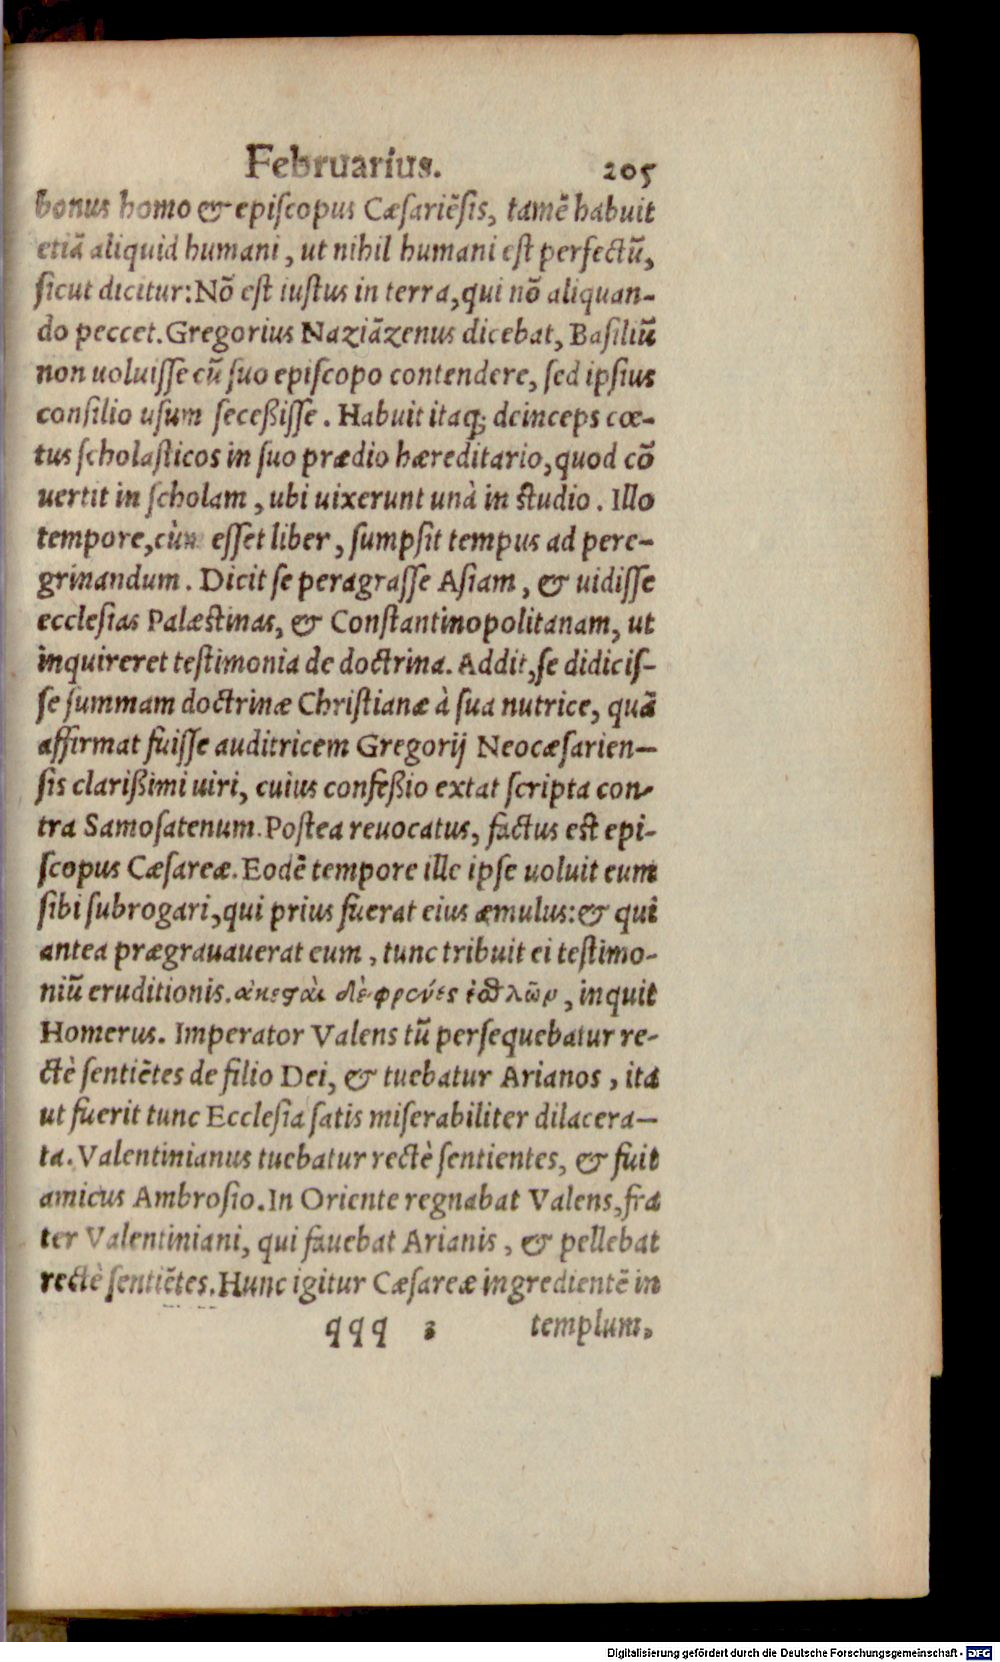 Februarius. 205
bonus homo & episcopus Cæsariẽsis, tamẽ habuit
etiã aliquid humani, ut nihil humani est perfectũ,
sicut dicitur: Nõ est iustus in terra, qui nõ aliquan-
do peccet. Gregorius Naziãzenus dicebat, Basiliũ
non uoluisse cũ suo episcopo contendere, sed ipsius
consilio usum seceßisse. Habuit itaq; deinceps cœ-
tus scholasticos in suo prædio hæreditario, quod cõ
uertit in scholam, ubi uixerunt unà in studio. Illo
tempore, cùm esset liber, sumpsit tempus ad pere-
grinandum. Dicit se peragrasse Asiam, & uidisse
ecclesias Palæstinas, & Constantinopolitanam, ut
inquireret testimonia de doctrina. Addit, se didicis-
se summam doctrinæ Christianæ à sua nutrice, quã
affirmat fuisse auditricem Gregorij Neocæsarien-
sis clarißimi uiri, cuius confeßio extat scripta con-
tra Samosatenum. Postea reuocatus, factus est epi-
scopus Cæsareæ. Eodẽ tempore ille ipse uoluit eum
sibi subrogari, qui prius fuerat eius æmulus: & qui
antea prægrauauerat eum, tunc tribuit ei testimo-
niũ eruditionis. ἀκεσαὶ δὲ φρένες ἐσθλῶν, inquit
Homerus. Imperator Valens tũ persequebatur re-
ctè sentiẽtes de filio Dei, & tuebatur Arianos, ita
ut fuerit tunc Ecclesia satis miserabiliter dilacera-
ta. Valentinianus tuebatur rectè sentientes, & fuit
amicus Ambrosio. In Oriente regnabat Valens, fra
ter Valentiniani, qui fauebat Arianis, & pellebat
rectè sentiẽtes. Hunc igitur Cæsareæ ingredientẽ in
qqq 3 templum,
Digitalisierung gefördert durch die Deutsche Forschungsgemeinschaft - DFG